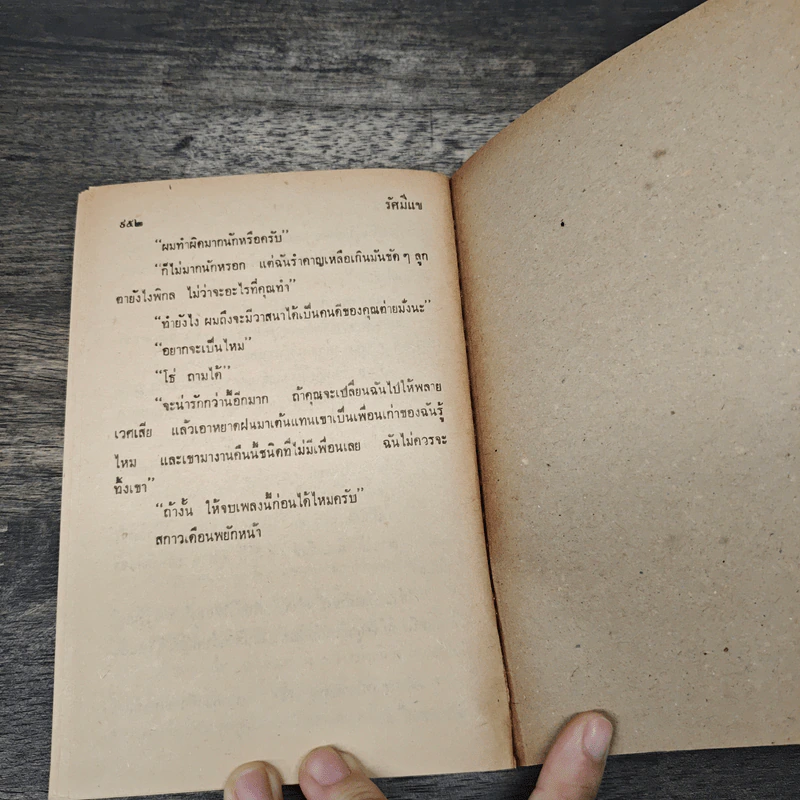 ๙๕๒
รัศมีแข
“ผมทำผิดมากนักหรือครับ”
“ก็ไม่มากนักหรอก แต่ฉันรำคาญเหลือเกินมันขัด ๆ ลูก
ตายังไงพิกล ไม่ว่าจะอะไรที่คุณทำ”
“ทำยังไง ผมถึงจะมีวาสนาได้เป็นคนดีของคุณอ่ายมั่งนะ”
“อยากจะเป็นไหม”
“โธ่ ถามได้”
“จะน่ารักกว่านี้อีกมาก ถ้าคุณจะเปลี่ยนฉันไปให้พลาย
เวศเสีย แล้วเอาหยาดฝนมาเต้นแทนเขาเป็นเพื่อนเก่าของฉันรู้
ไหม และเขามางานคืนนี้ชนิดที่ไม่มีเพื่อนเลย ฉันไม่ควรจะ
ทิ้งเขา”
“ถ้างั้น ให้จบเพลงนี้ก่อนได้ไหมครับ”
สกาวเดือนพยักหน้า